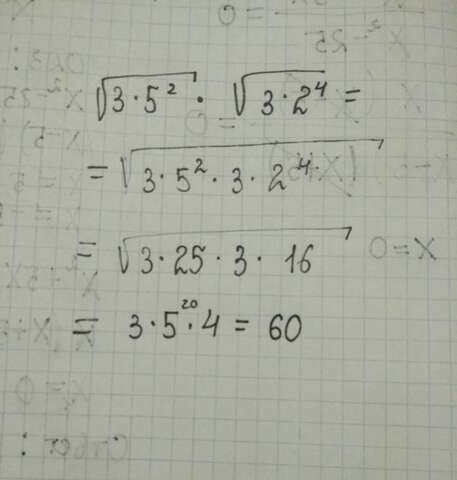 √3·5² · √3·2⁴ =
= √3·5²·3·2⁴
= √3·25·3·16
= 3·5·4 = 60
20